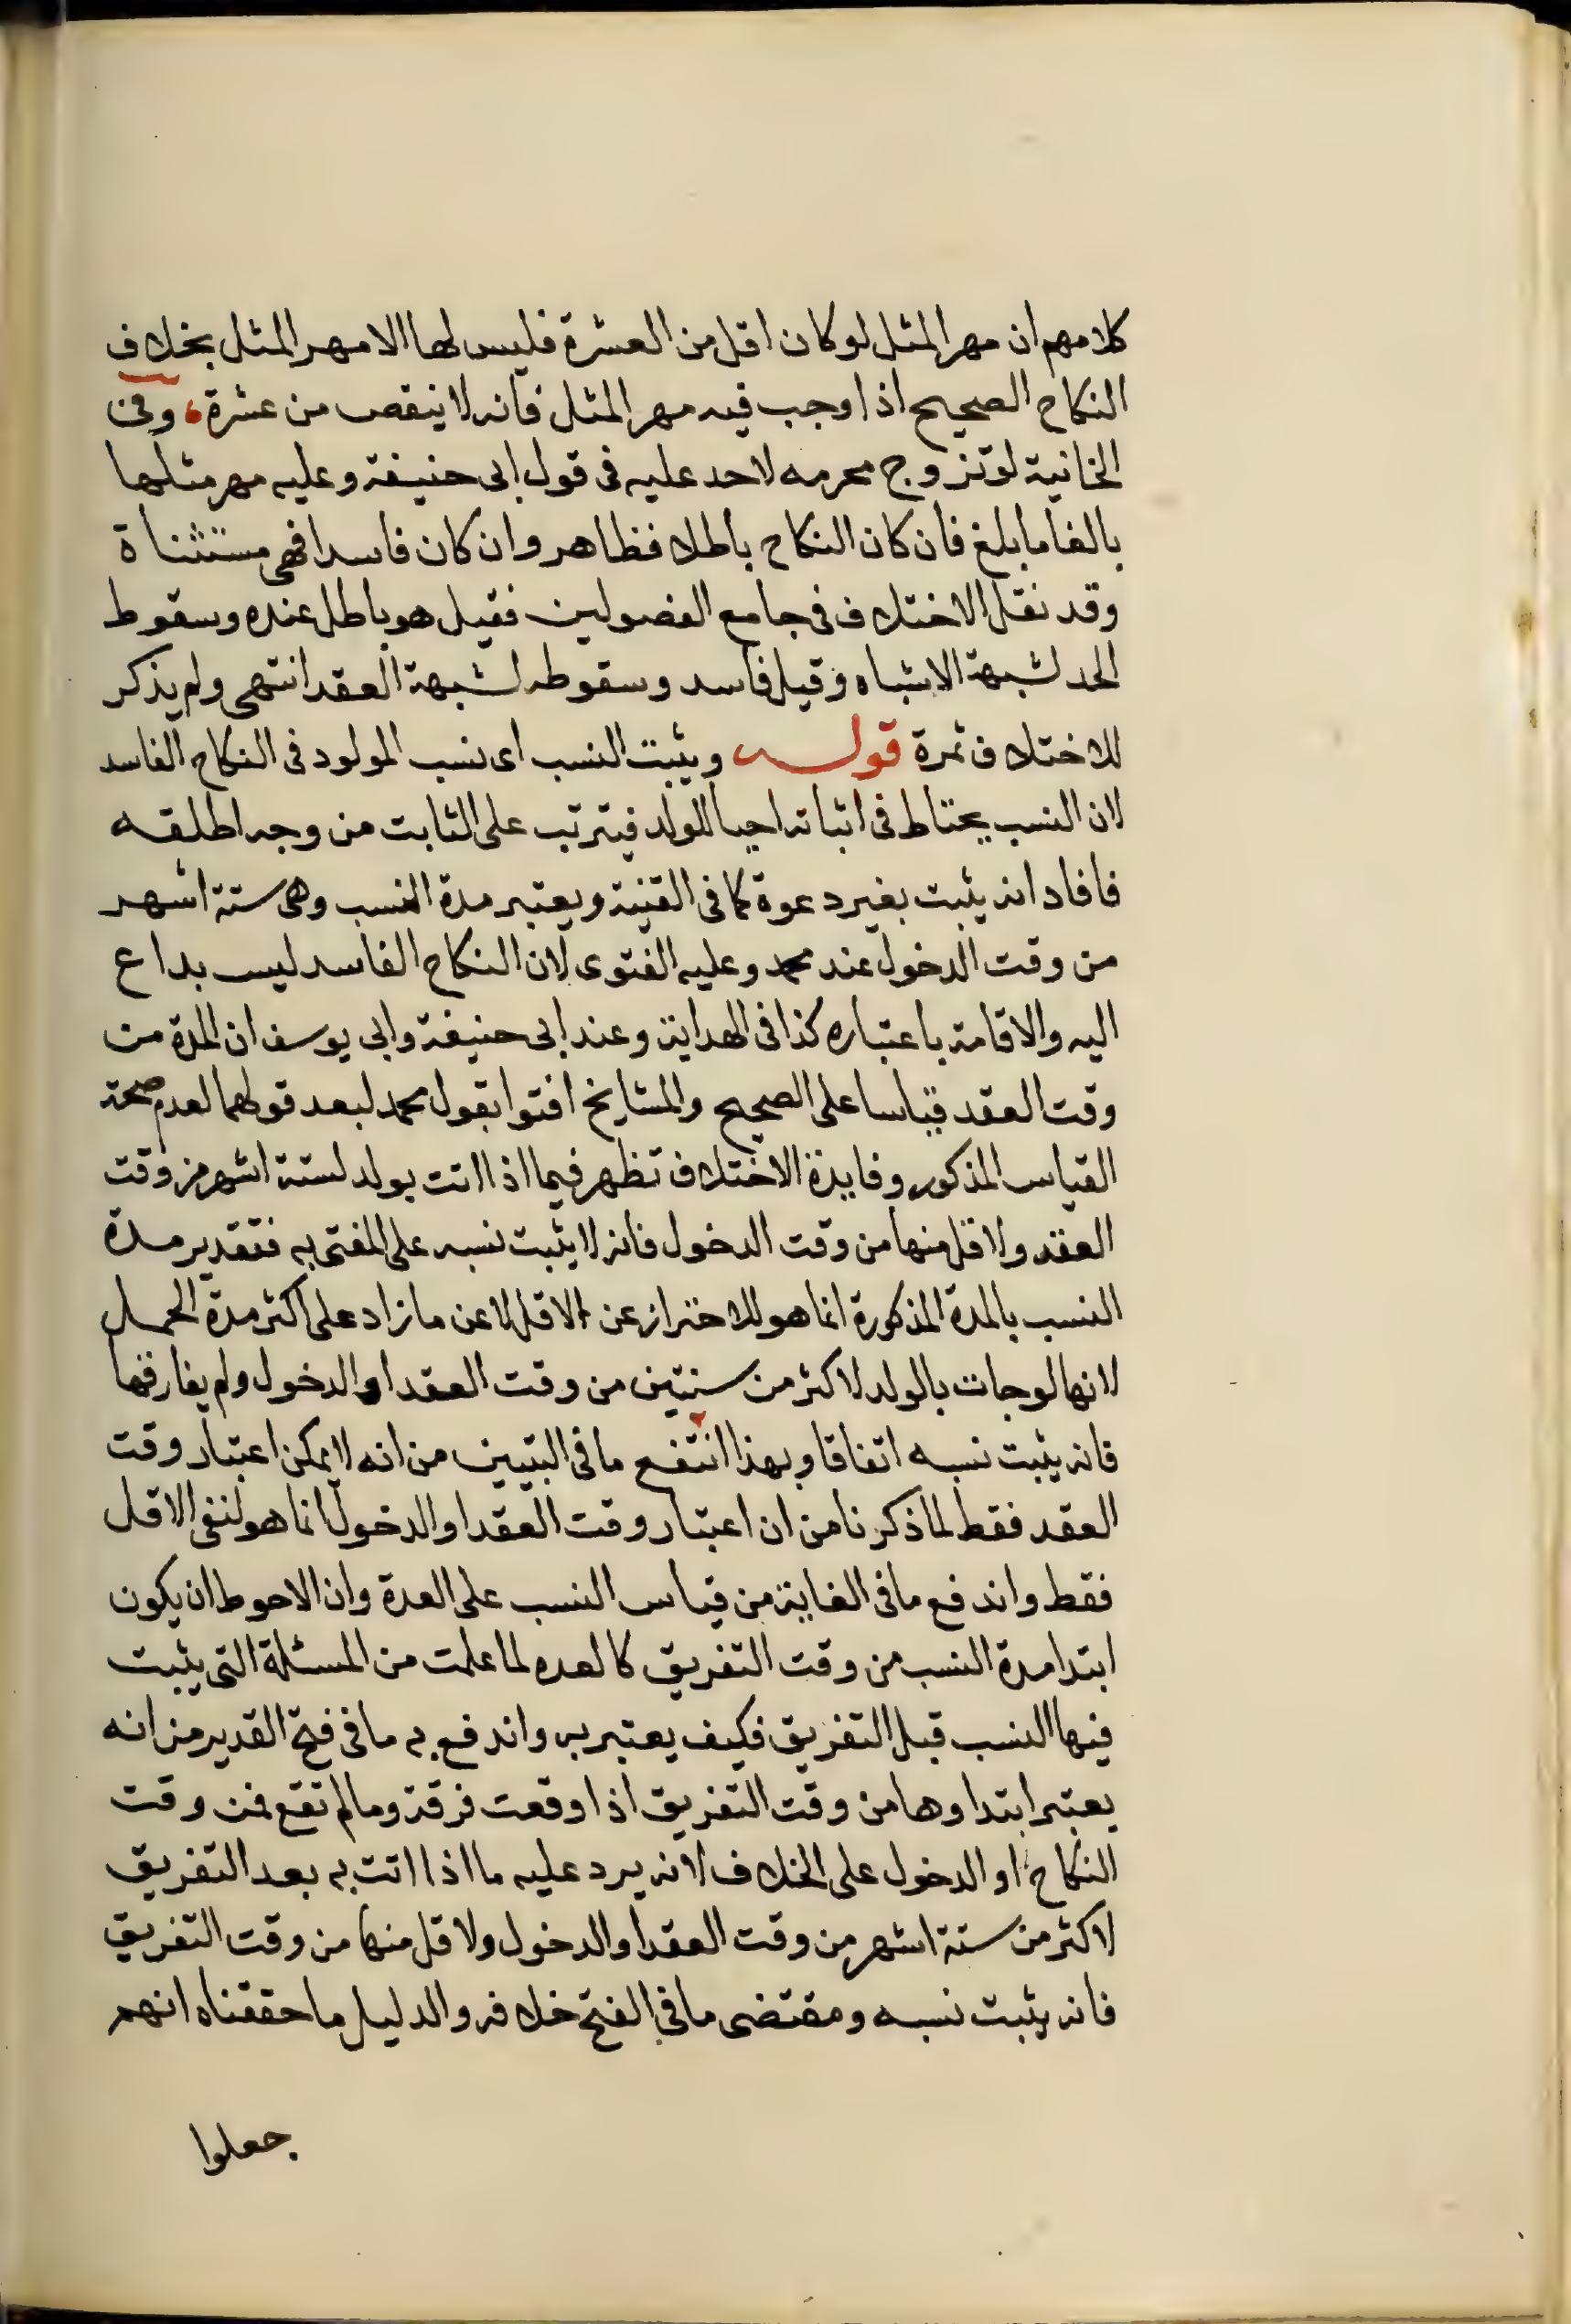 كلامهم ان مهر المثل لو كان اقل من العشرة فليس لها الا مهر المثل بخلاف
النكاح الصحيح اذا وجب فيه مهر المثل فانه لا ينقص من عشرة، وفى
الخانية لو تزوج محرمه لا حد عليه فى قول ابى حنيفة وعليه مهر مثلها
بالغا ما بلغ فان كان النكاح باطلا فظاهر وان كان فاسدا فهى مستثناة
وقد نقل الاختلاف فى جامع الفصولين فقيل هو باطل عنده وسقوط
الحد لشبهة الاشباه وقيل فاسد وسقوطه لشبهة العقد انتهى ولم يذكر
للاختلاف ثمرة قوله ويثبت النسب اى نسب المولود فى النكاح الفاسد
لان النسب يحتاط فى اثباته احيا للولد فيترتب على الثابت من وجه اطلقه
فافاد انه يثبت بغير دعوة كما فى القنية ويعتبر مدة النسب وهى ستة اشهر
من وقت الدخول عند محمد وعليه الفتوى لان النكاح الفاسد ليس بداع
اليه والاقامة باعتباره كذا فى الهداية وعند ابى حنيفة وابى يوسف ان المدة من
وقت العقد قياسا على الصحيح والمشايخ افتوا بقول محمد لبعد قولهما لعدم صحة
القياس المذكور وفايدة الاختلاف تظهر فيما اذا اتت بولد لستة اشهر من وقت
العقد ولاقل منها من وقت الدخول فانه لا يثبت نسبه على المفتى به فتقدير مدة
النسب بالمدة المذكورة انما هو للاحتراز عن الاقل لا عن ما زاد على اكثر مدة الحمل
لانها لو جات بالولد لاكثر من سنتين من وقت العقد او الدخول ولم يفارقها
فانه يثبت نسبه اتفاقا وبهذا انتفع ما فى التبيين من انه لا يمكن اعتبار وقت
العقد فقط لما ذكرنا من ان اعتبار وقت العقد او الدخول انما هو لنفى الاقل
فقط واندفع ما فى الغاية من قياس النسب على العدة وان الاحوط ان يكون
ابتدا مدة النسب من وقت التفريق كالعده لما علمت من المسئلة التى يثبت
فيها النسب قبل التفريق فكيف يعتبر به واندفع به ما فى فتح القدير من انه
يعتبر ابتداوها من وقت التفريق اذا وقعت فرقة وما لم تقع فمن وقت
النكاح او الدخول على الخلاف لانه يرد عليه ما اذا اتت به بعد التفريق
لاكثر من ستة اشهر من وقت العقد او الدخول ولاقل منها من وقت التفريق
فانه يثبت نسبه ومقتضى ما فى الفتح خلافه والدليل ما حققناه انهم
جعلوا